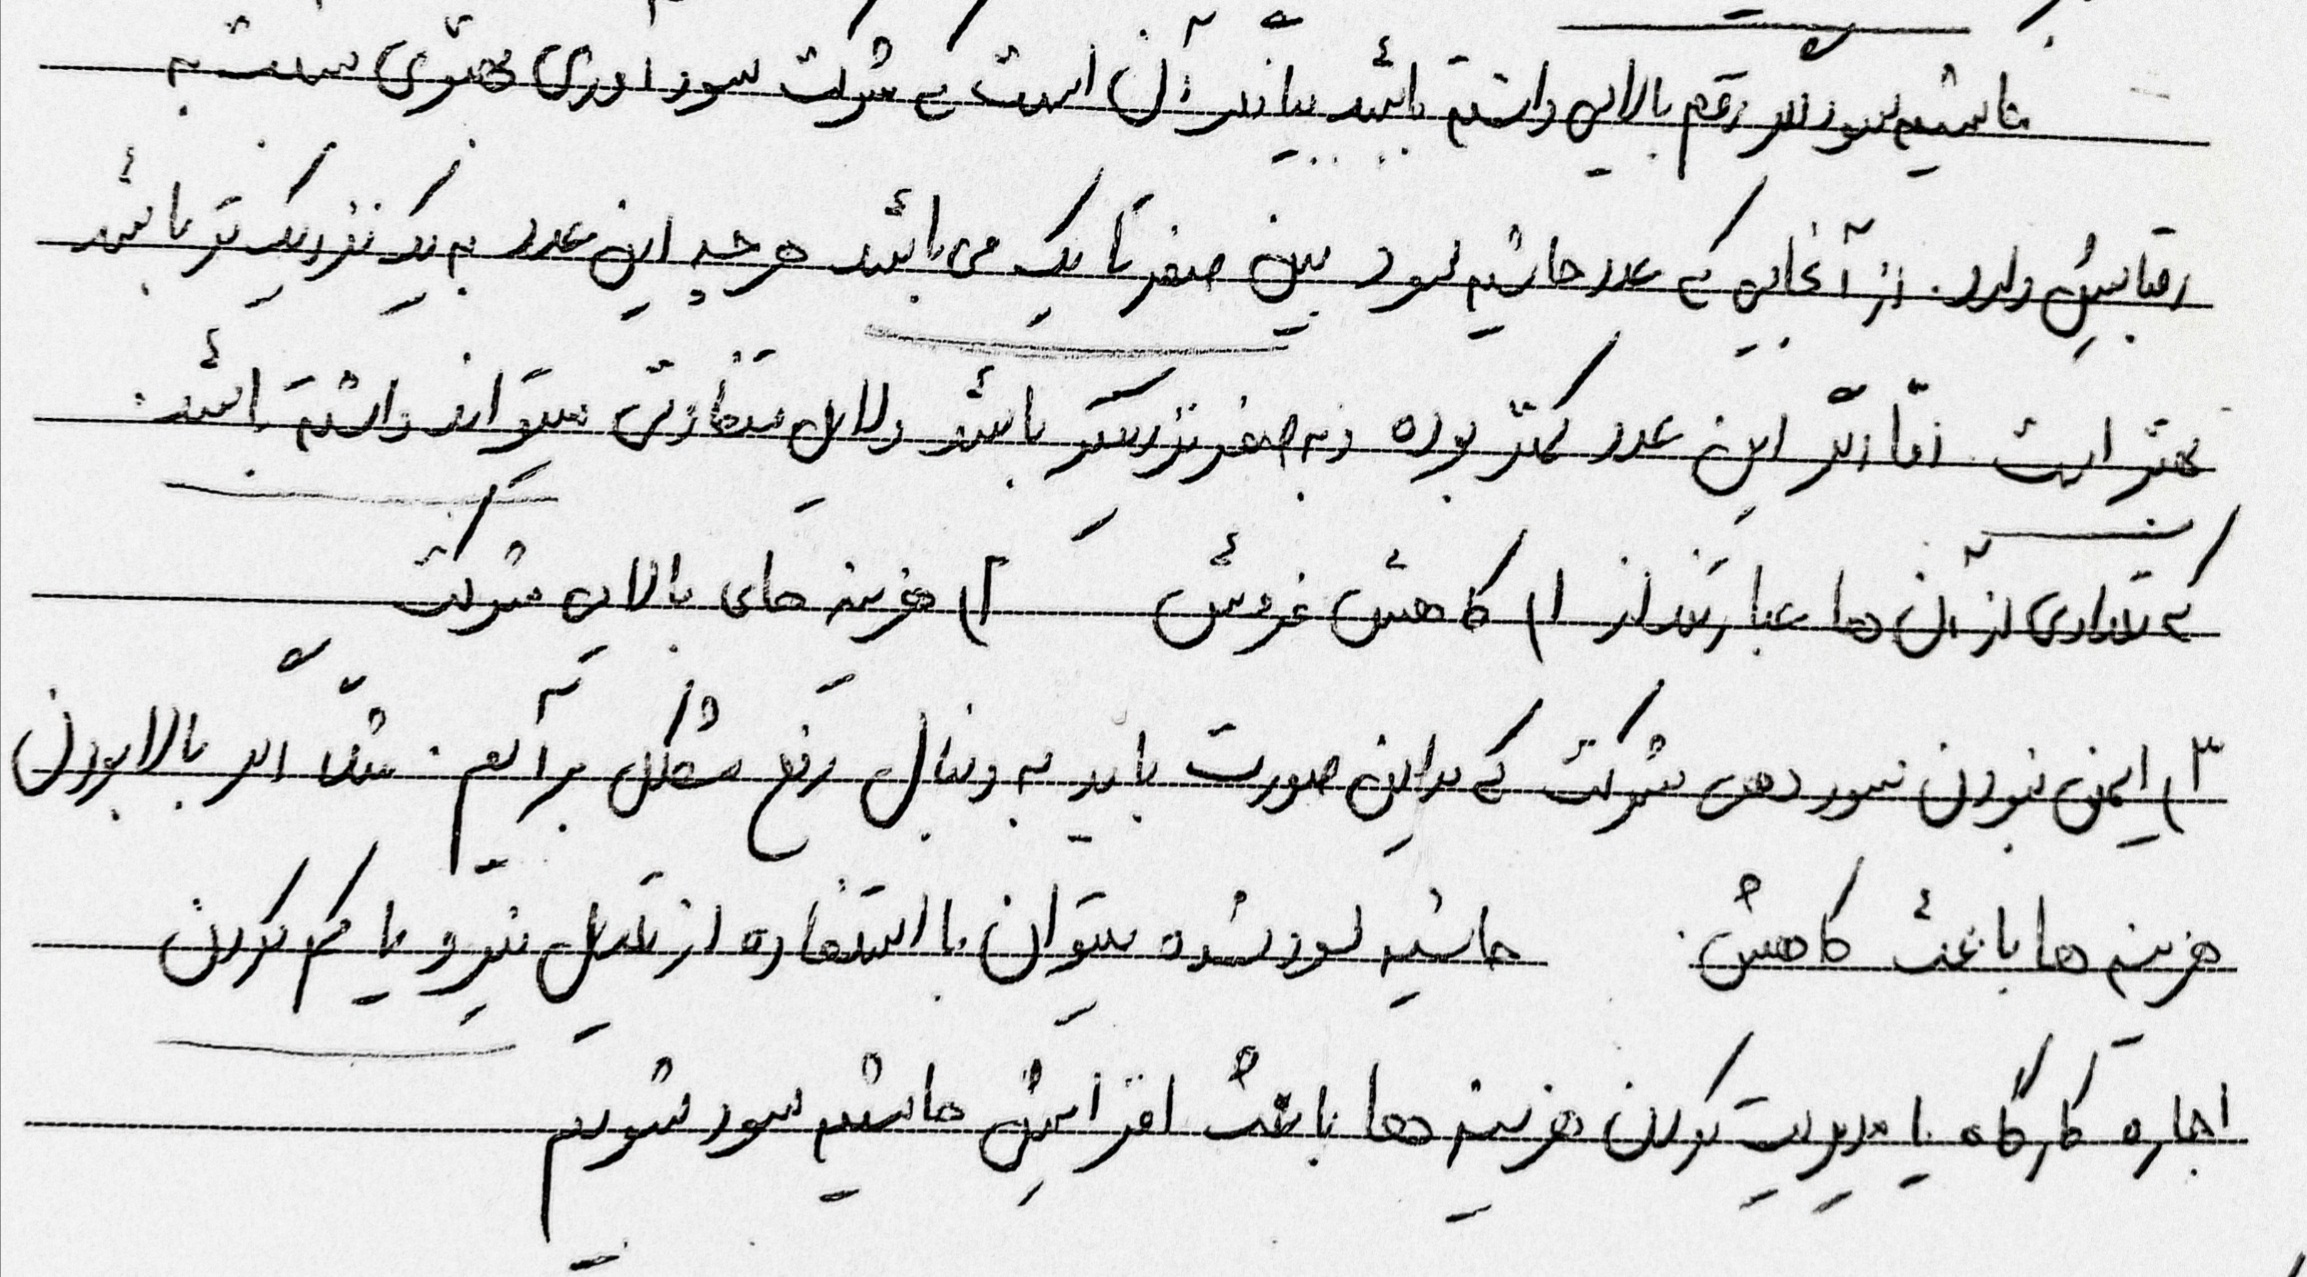 حاشیه سود اگر رقم بالایی داشته باشد بیانگر آن است که شرکت سود آوری بهتری نسبت به
رقبایش دارد. از آنجایی که عدد حاشیه سود بین صفر تا یک می باشد هر چه این عدد به یک نزدیک تر باشد
بهتر است. اما اگر این عدد کمتر بوده و به صفر نزدیکتر باشد دلایل متفاوتی میتواند داشته باشد.
که تعدادی از آن ها عبارتند از ۱) کاهش فروش ۲) هزینه های بالای شرکت
۳) ایمن نبودن سود دهی شرکت که در این صورت باید به دنبال رفع مشکل برآیم. مثلا اگر بالا بودن
هزینه ها باعث کاهش حاشیه سود شده میتوان با استفاده از تعدیل نیرو یا کم کردن
اجاره کارگاه یا مدیریت کردن هزینه ها باعث افزایش حاشیه سود شویم